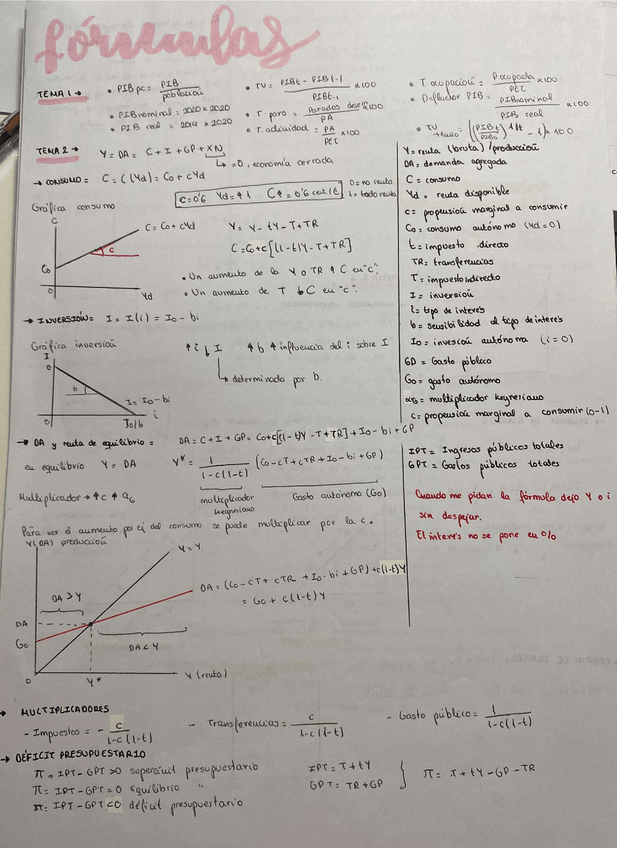 fórmulas
TEMA 1 → • PIB pc = PIB / población • TV = PIBt - PIBt-1 / PIBt-1 x100 • T. ocupación = P ocupada / PET x100
• PIB nominal = 2020 x 2020 • T. paro = Parados / PA x100 • Deflactor PIB = PIB nominal / PIB real x100
• PIB real = 2019 x 2020 • T. actividad = PA / PET x100 • TV = ((PIBt / PIB0)^1/t - 1) x 100
TEMA 2 → Y = DA = C + I + GP + XN
↳ =0, economía cerrada
→ CONSUMO = C = C(Yd) = Co + cYd
c=0'6 Yd=↑1 C↑=0'6 0=no renta
1=todo renta
Gráfica consumo
C
C = Co + cYd
c
Co
0
Yd
Y = Y - tY - T + TR
C = Co + c[(1-t)Y - T + TR]
• Un aumento de Co Y o TR ↑ C en "c".
• Un aumento de T ↓ C en "c".
→ INVERSIÓN = I = I(i) = Io - bi
Gráfica inversión ↑i ↓I ↑b ↑influencia del i sobre I
↳ determinada por b.
I
b
I = Io - bi
0
Io/b
i
→ DA y renta de equilibrio = DA = C + I + GP = Co + c[(1-t)Y - T + TR] + Io - bi + GP
en equilibrio Y = DA Y* = 1 / 1-c(1-t) (Co - cT + cTR + Io - bi + GP)
Multiplicador → ↑c ↑αG multiplicador keynniano Gasto autónomo (Go)
Para ver el aumento por ej del consumo se puede multiplicar por la c.
Y(DA) producción
Y = Y
DA > Y
DA = (Co - cT + cTR + Io - bi + GP) + c(1-t)Y
= Go + c(1-t)Y
DA
Go
DA < Y
0
Y*
Y (renta)
→ MULTIPLICADORES
- Impuestos = - c / 1-c(1-t) - Transferencias = c / 1-c(1-t) - Gasto público = 1 / 1-c(1-t)
→ DÉFICIT PRESUPUESTARIO
π = IPT - GPT > 0 superávit presupuestario IPT = T + tY
π = IPT - GPT = 0 equilibrio " GPT = TR + GP
π = IPT - GPT < 0 déficit presupuestario
π = T + tY - GP - TR
Y = renta (bruta) / producción
DA = demanda agregada
C = consumo
Yd = renta disponible
c = propensión marginal a consumir
Co = consumo autónomo (Yd = 0)
t = impuesto directo
TR = transferencias
T = impuesto indirecto
I = inversión
i = tipo de interés
b = sensibilidad al tipo de interés
Io = inversión autónoma (i = 0)
GP = Gasto público
Go = gasto autónomo
αG = multiplicador keyneriano
c = propensión marginal a consumir (0-1)
IPT = Ingresos públicos totales
GPT = Gastos públicos totales
Cuando me pidan la fórmula dejo Y o i
sin despejar.
El interés no se pone en %